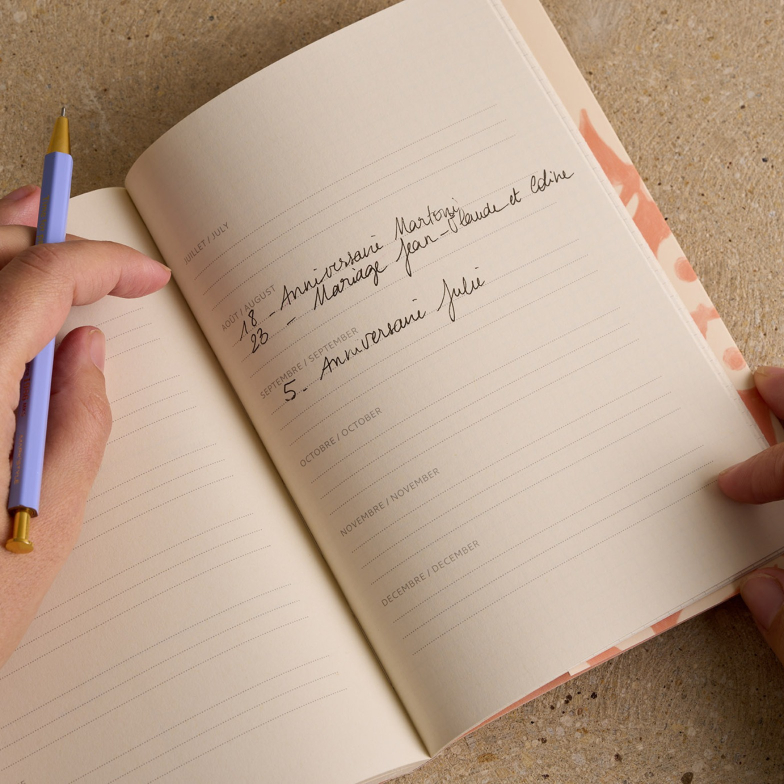 JUILLET / JULY
AOÛT / AUGUST
18 - Anniversaire Martoni
23 - Mariage Jean-Claude et Coline
SEPTEMBRE / SEPTEMBER
5 - Anniversaire Julie
OCTOBRE / OCTOBER
NOVEMBRE / NOVEMBER
DECEMBRE / DECEMBER